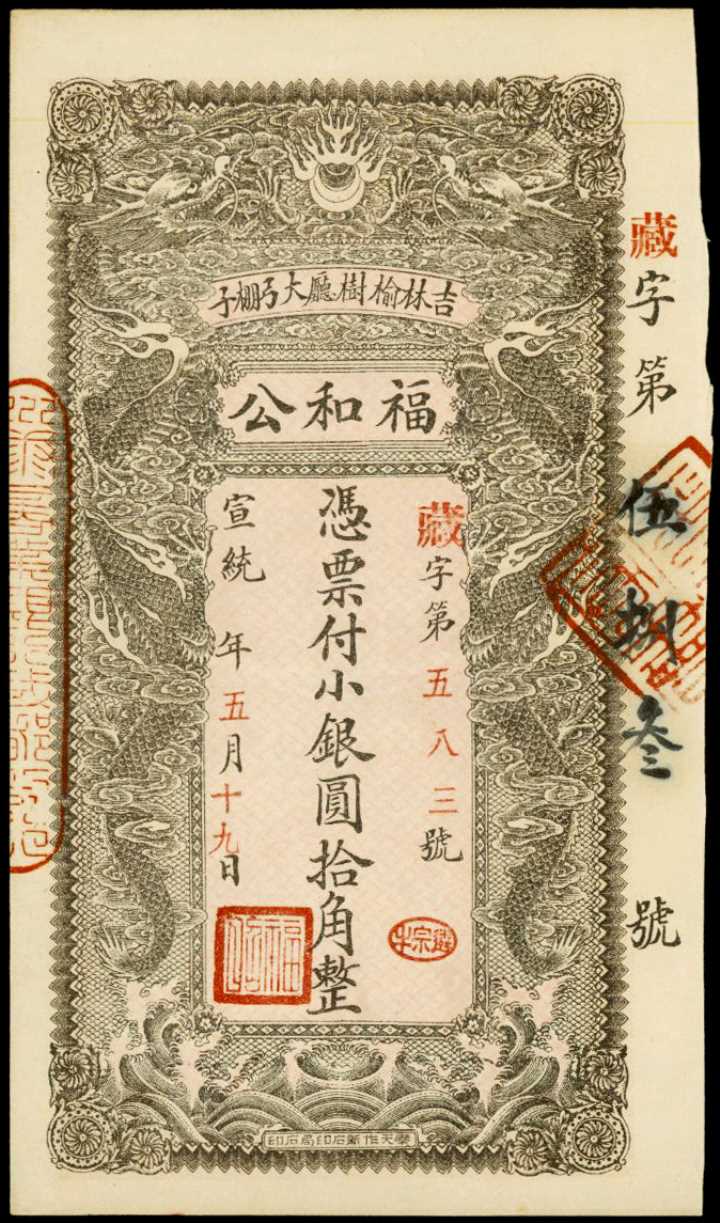 吉林榆樹廳大弓棚子
福和公
藏字第五八三號
憑票付小銀圓拾角整
宣統 年五月十九日
藏字第伍捌叁號